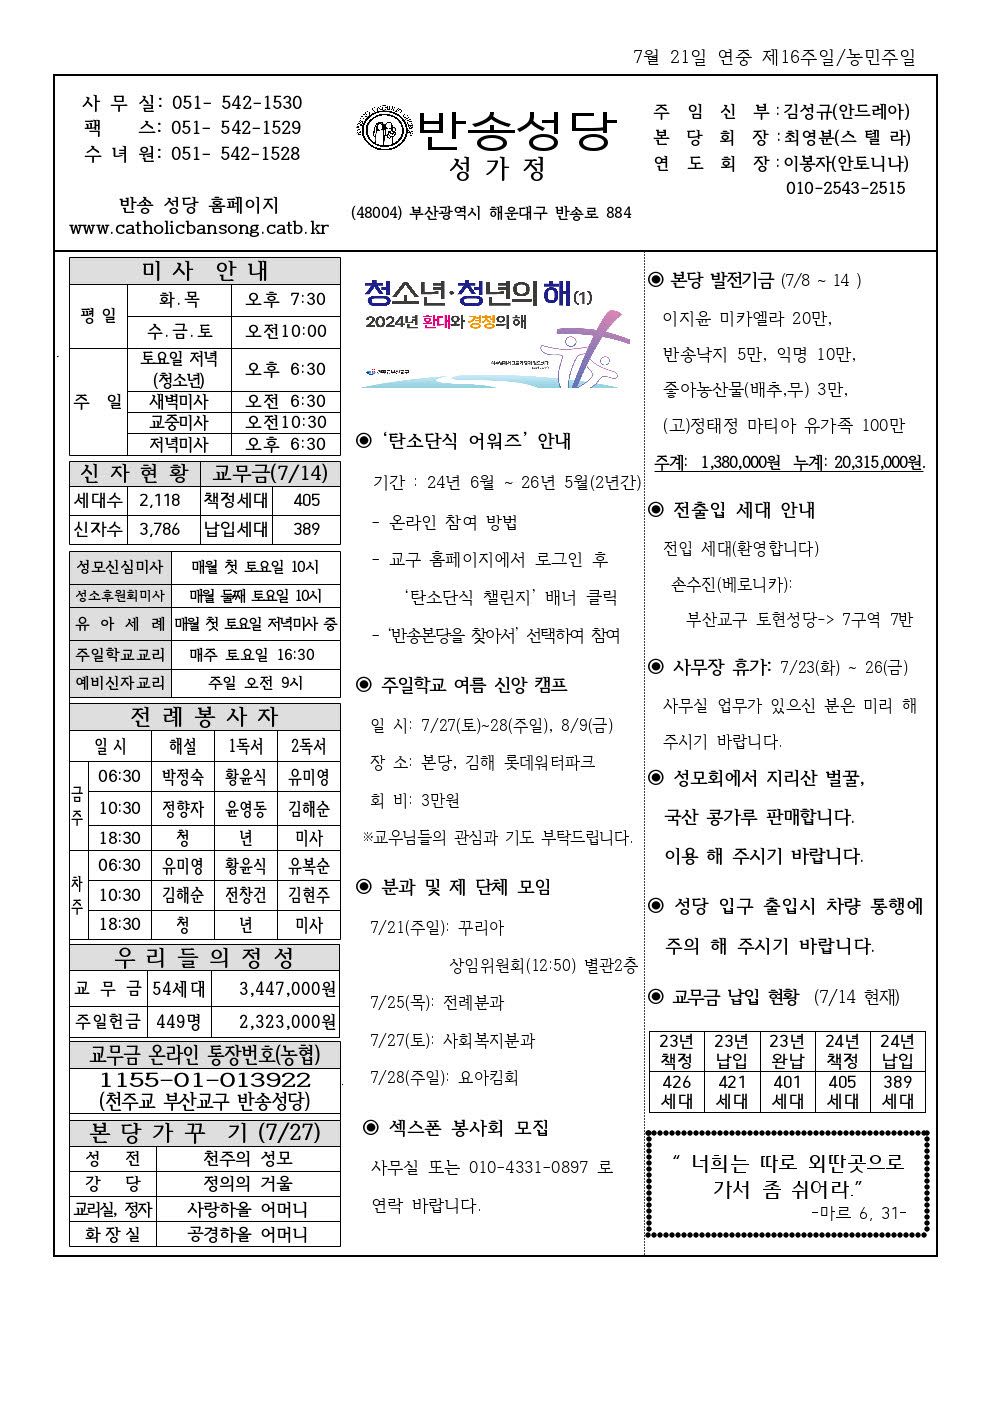 7월 21일 연중 제16주일/농민주일
사 무 실: 051- 542-1530
팩 스: 051- 542-1529
수 녀 원: 051- 542-1528
반송 성당 홈페이지
www.catholicbansong.catb.kr
반송성당
성 가 정
(48004) 부산광역시 해운대구 반송로 884
주 임 신 부 : 김성규(안드레아)
본 당 회 장 : 최영분(스 텔 라)
연 도 회 장 : 이봉자(안토니나)
010-2543-2515
미 사 안 내
평 일 화.목 오후 7:30
수.금.토 오전10:00
주 일 토요일 저녁 (청소년) 오후 6:30
새벽미사 오전 6:30
교중미사 오전10:30
저녁미사 오후 6:30
신 자 현 황 교무금(7/14)
세대수 2,118 책정세대 405
신자수 3,786 납입세대 389
성모신심미사 매월 첫 토요일 10시
성소후원회미사 매월 둘째 토요일 10시
유 아 세 례 매월 첫 토요일 저녁미사 중
주일학교교리 매주 토요일 16:30
예비신자교리 주일 오전 9시
전 례 봉 사 자
일 시 해설 1독서 2독서
금주 06:30 박정숙 황윤식 유미영
10:30 정향자 윤영동 김해순
18:30 청 년 미사
차주 06:30 유미영 황윤식 유복순
10:30 김해순 전창건 김현주
18:30 청 년 미사
우 리 들 의 정 성
교 무 금 54세대 3,447,000원
주일헌금 449명 2,323,000원
교무금 온라인 통장번호(농협)
1155-01-013922
(천주교 부산교구 반송성당)
본 당 가 꾸 기 (7/27)
성 전 천주의 성모
강 당 정의의 거울
교리실, 정자 사랑하올 어머니
화 장 실 공경하올 어머니
청소년·청년의 해(1)
2024년 환대와 경청의 해
◉ ‘탄소단식 어워즈’ 안내
기간 : 24년 6월 ~ 26년 5월(2년간)
- 온라인 참여 방법
- 교구 홈페이지에서 로그인 후
‘탄소단식 챌린지’ 배너 클릭
- ‘반송본당을 찾아서’ 선택하여 참여
◉ 주일학교 여름 신앙 캠프
일 시: 7/27(토)~28(주일), 8/9(금)
장 소: 본당, 김해 롯데워터파크
회 비: 3만원
※교우님들의 관심과 기도 부탁드립니다.
◉ 분과 및 제 단체 모임
7/21(주일): 꾸리아
상임위원회(12:50) 별관2층
7/25(목): 전례분과
7/27(토): 사회복지분과
7/28(주일): 요아킴회
◉ 섹스폰 봉사회 모집
사무실 또는 010-4331-0897 로
연락 바랍니다.
◉ 본당 발전기금 (7/8 ~ 14 )
이지윤 미카엘라 20만,
반송낙지 5만, 익명 10만,
좋아농산물(배추,무) 3만,
(고)정태정 마티아 유가족 100만
주계: 1,380,000원 누계: 20,315,000원.
◉ 전출입 세대 안내
전입 세대(환영합니다)
손수진(베로니카):
부산교구 토현성당-> 7구역 7반
◉ 사무장 휴가: 7/23(화) ~ 26(금)
사무실 업무가 있으신 분은 미리 해
주시기 바랍니다.
◉ 성모회에서 지리산 벌꿀,
국산 콩가루 판매합니다.
이용 해 주시기 바랍니다.
◉ 성당 입구 출입시 차량 통행에
주의 해 주시기 바랍니다.
◉ 교무금 납입 현황 (7/14 현재)
23년 23년 23년 24년 24년
책정 납입 완납 책정 납입
426 421 401 405 389
세대 세대 세대 세대 세대
“ 너희는 따로 외딴곳으로
가서 좀 쉬어라.”
-마르 6, 31-